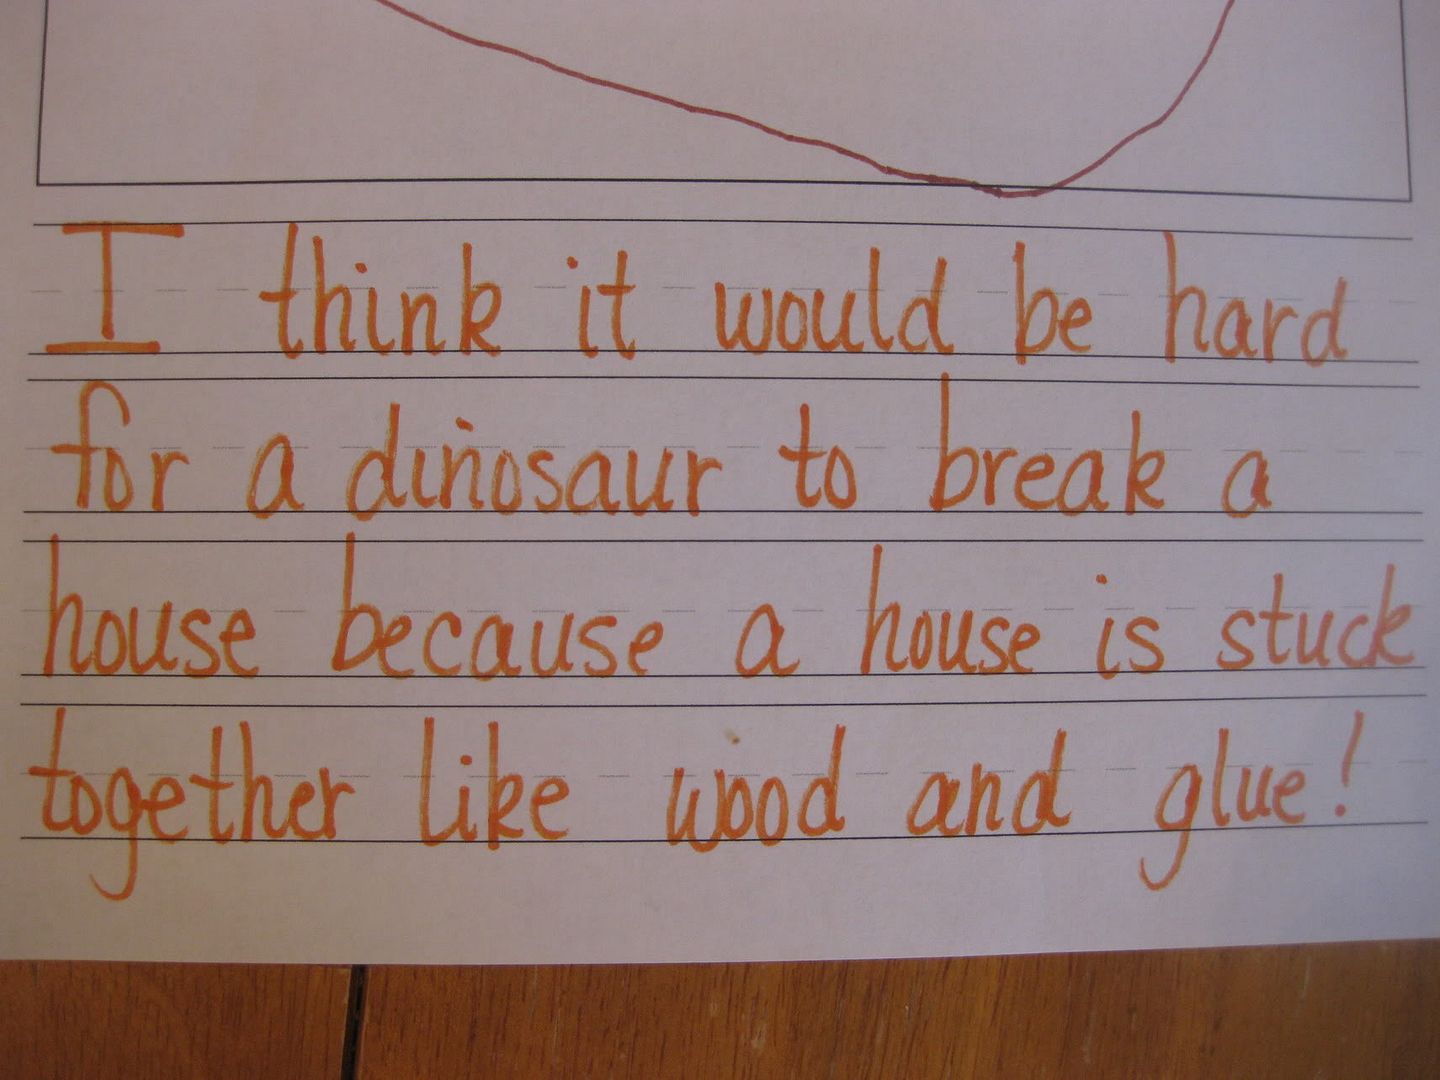 I think it would be hard
for a dinosaur to break a
house because a house is stuck
together like wood and glue!